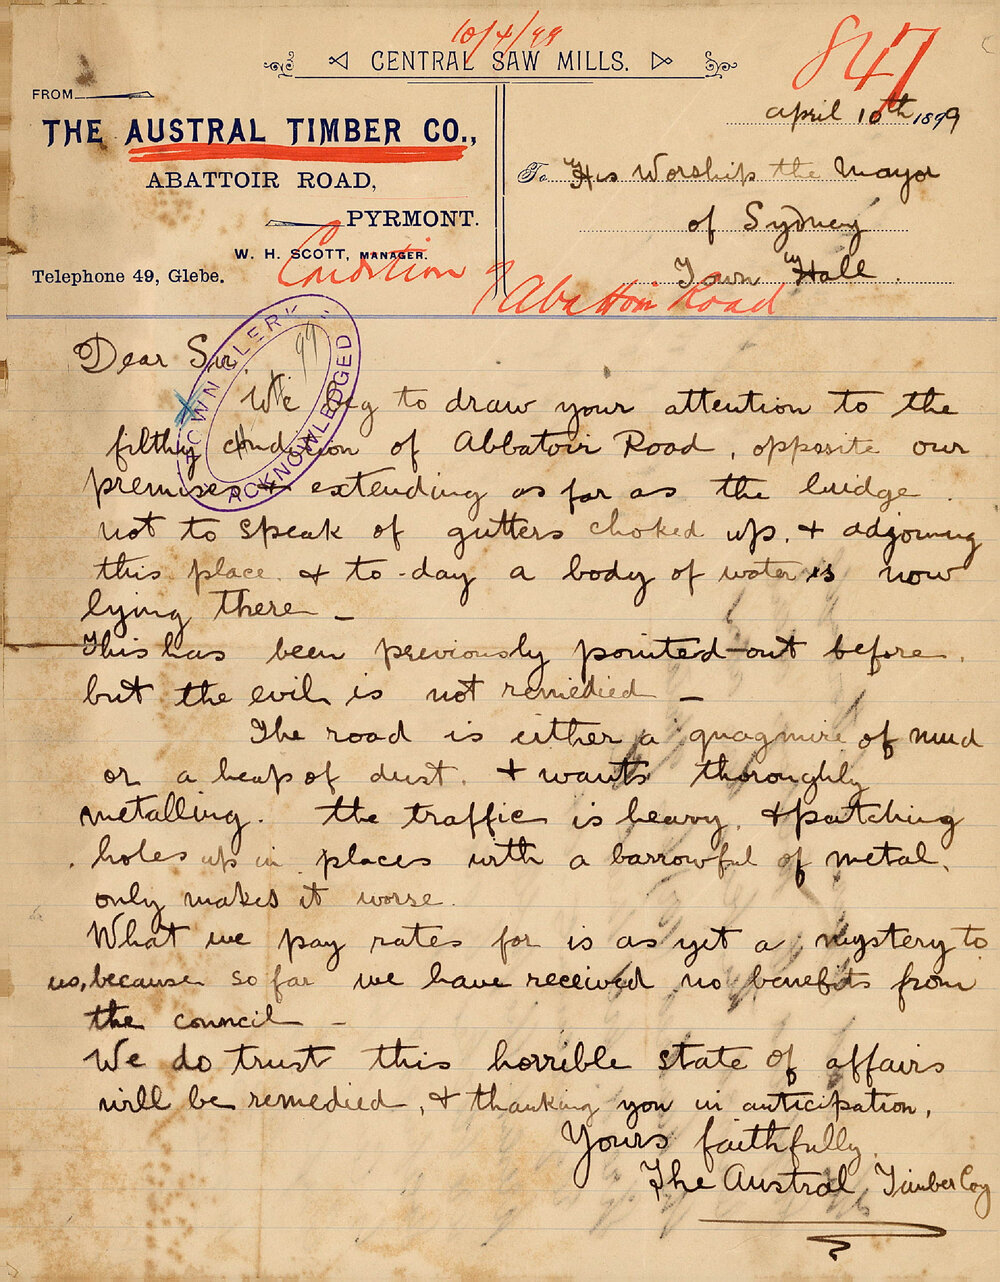 10/4/99
847
CENTRAL SAW MILLS.
FROM
THE AUSTRAL TIMBER CO.,
ABATTOIR ROAD,
PYRMONT.
W. H. SCOTT, MANAGER.
Telephone 49, Glebe.
April 10th 1899
To His Worship the Mayor
of Sydney
Town Hall.
Condition of Abattoir Road
TOWN CLERK
ACKNOWLEDGED
Dear Sir
We beg to draw your attention to the
filthy condition of Abbatoir Road, opposite our
premises extending as far as the bridge.
not to speak of gutters choked up, & adjoining
this place. & to-day a body of water is now
lying there –
This has been previously pointed-out before,
but the evil is not remedied –
The road is either a quagmire of mud
or a heap of dust. & wants thoroughly
metalling. the traffic is heavy, & patching
holes up in places with a barrowful of metal,
only makes it worse.
What we pay rates for is as yet a mystery to
us, because so far we have received no benefits from
the council –
We do trust this horrible state of affairs
will be remedied, & thanking you in anticipation,
Yours faithfully
The Austral Timber Coy